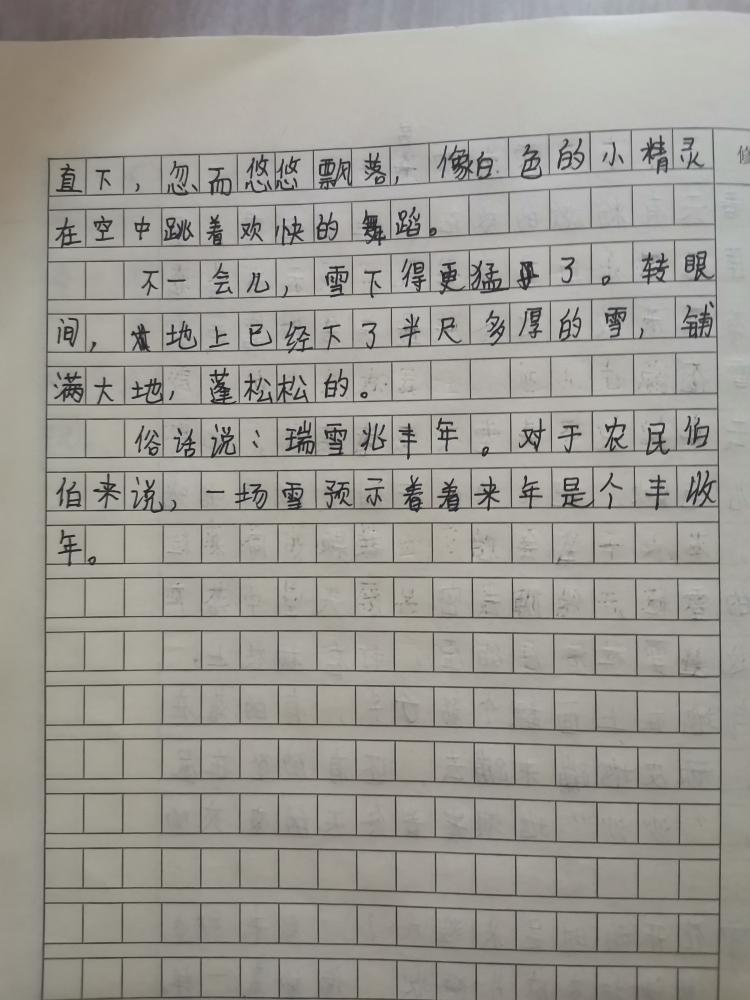 直下，忽而悠悠飘落，像白色的小精灵
在空中跳着欢快的舞蹈。
不一会儿，雪下得更猛了。转眼
间，地上已经下了半尺多厚的雪，铺
满大地，蓬松松的。
俗话说：瑞雪兆丰年。对于农民伯
伯来说，一场雪预示着着来年是个丰收
年。